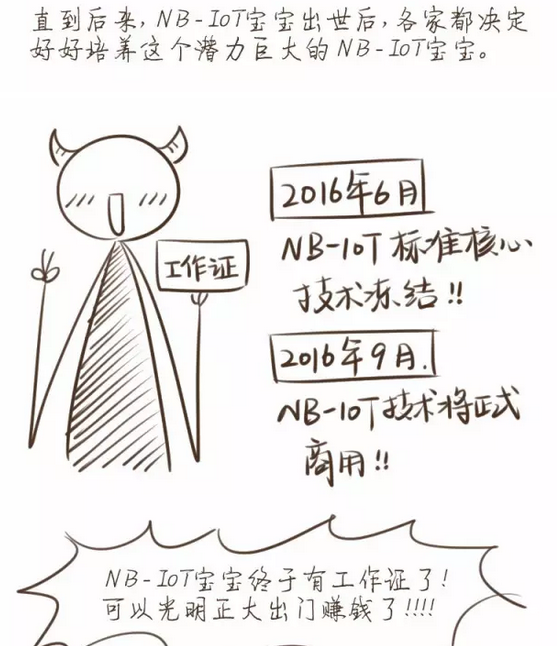 直到后来,NB-IoT宝宝出世后,各家都决定
好好培养这个潜力巨大的NB-IoT宝宝。
工作证
2016年6月
NB-IoT标准核心
技术冻结!!
2016年9月.
NB-IoT技术将正式
商用!!
NB-IoT宝宝终于有工作证了!
可以光明正大出门赚钱了!!!!